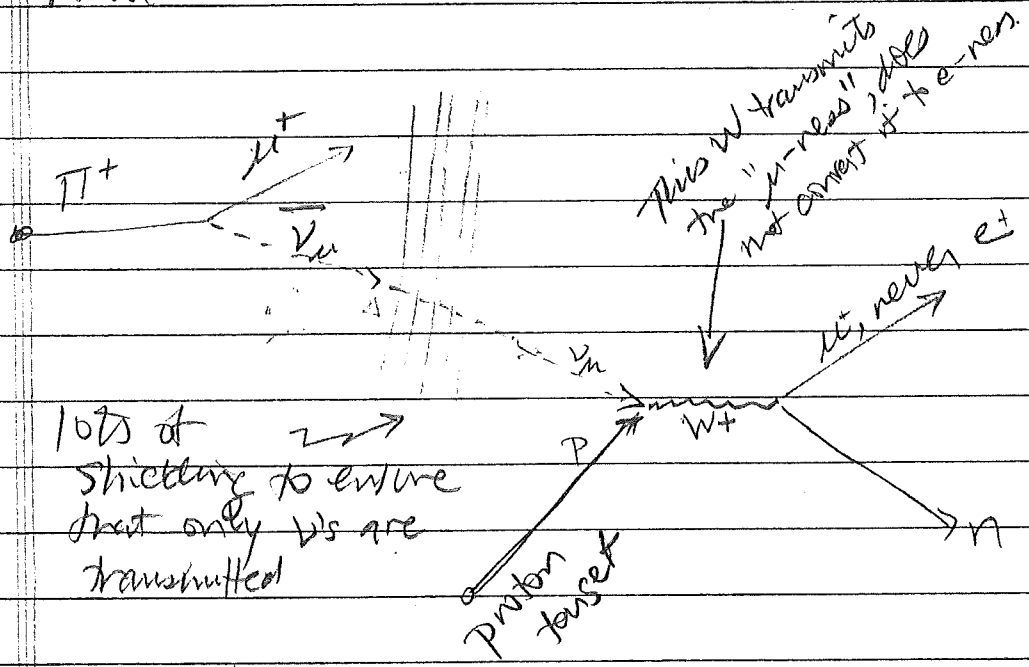 This W transmits
the "μ-ness", does
not convert it to e-ness.
Π⁺
μ⁺
ν̅_μ
μ⁺, never e⁺
ν_μ
W+
lots of
shielding to ensure
that only ν's are
transmitted
P
n
proton
target